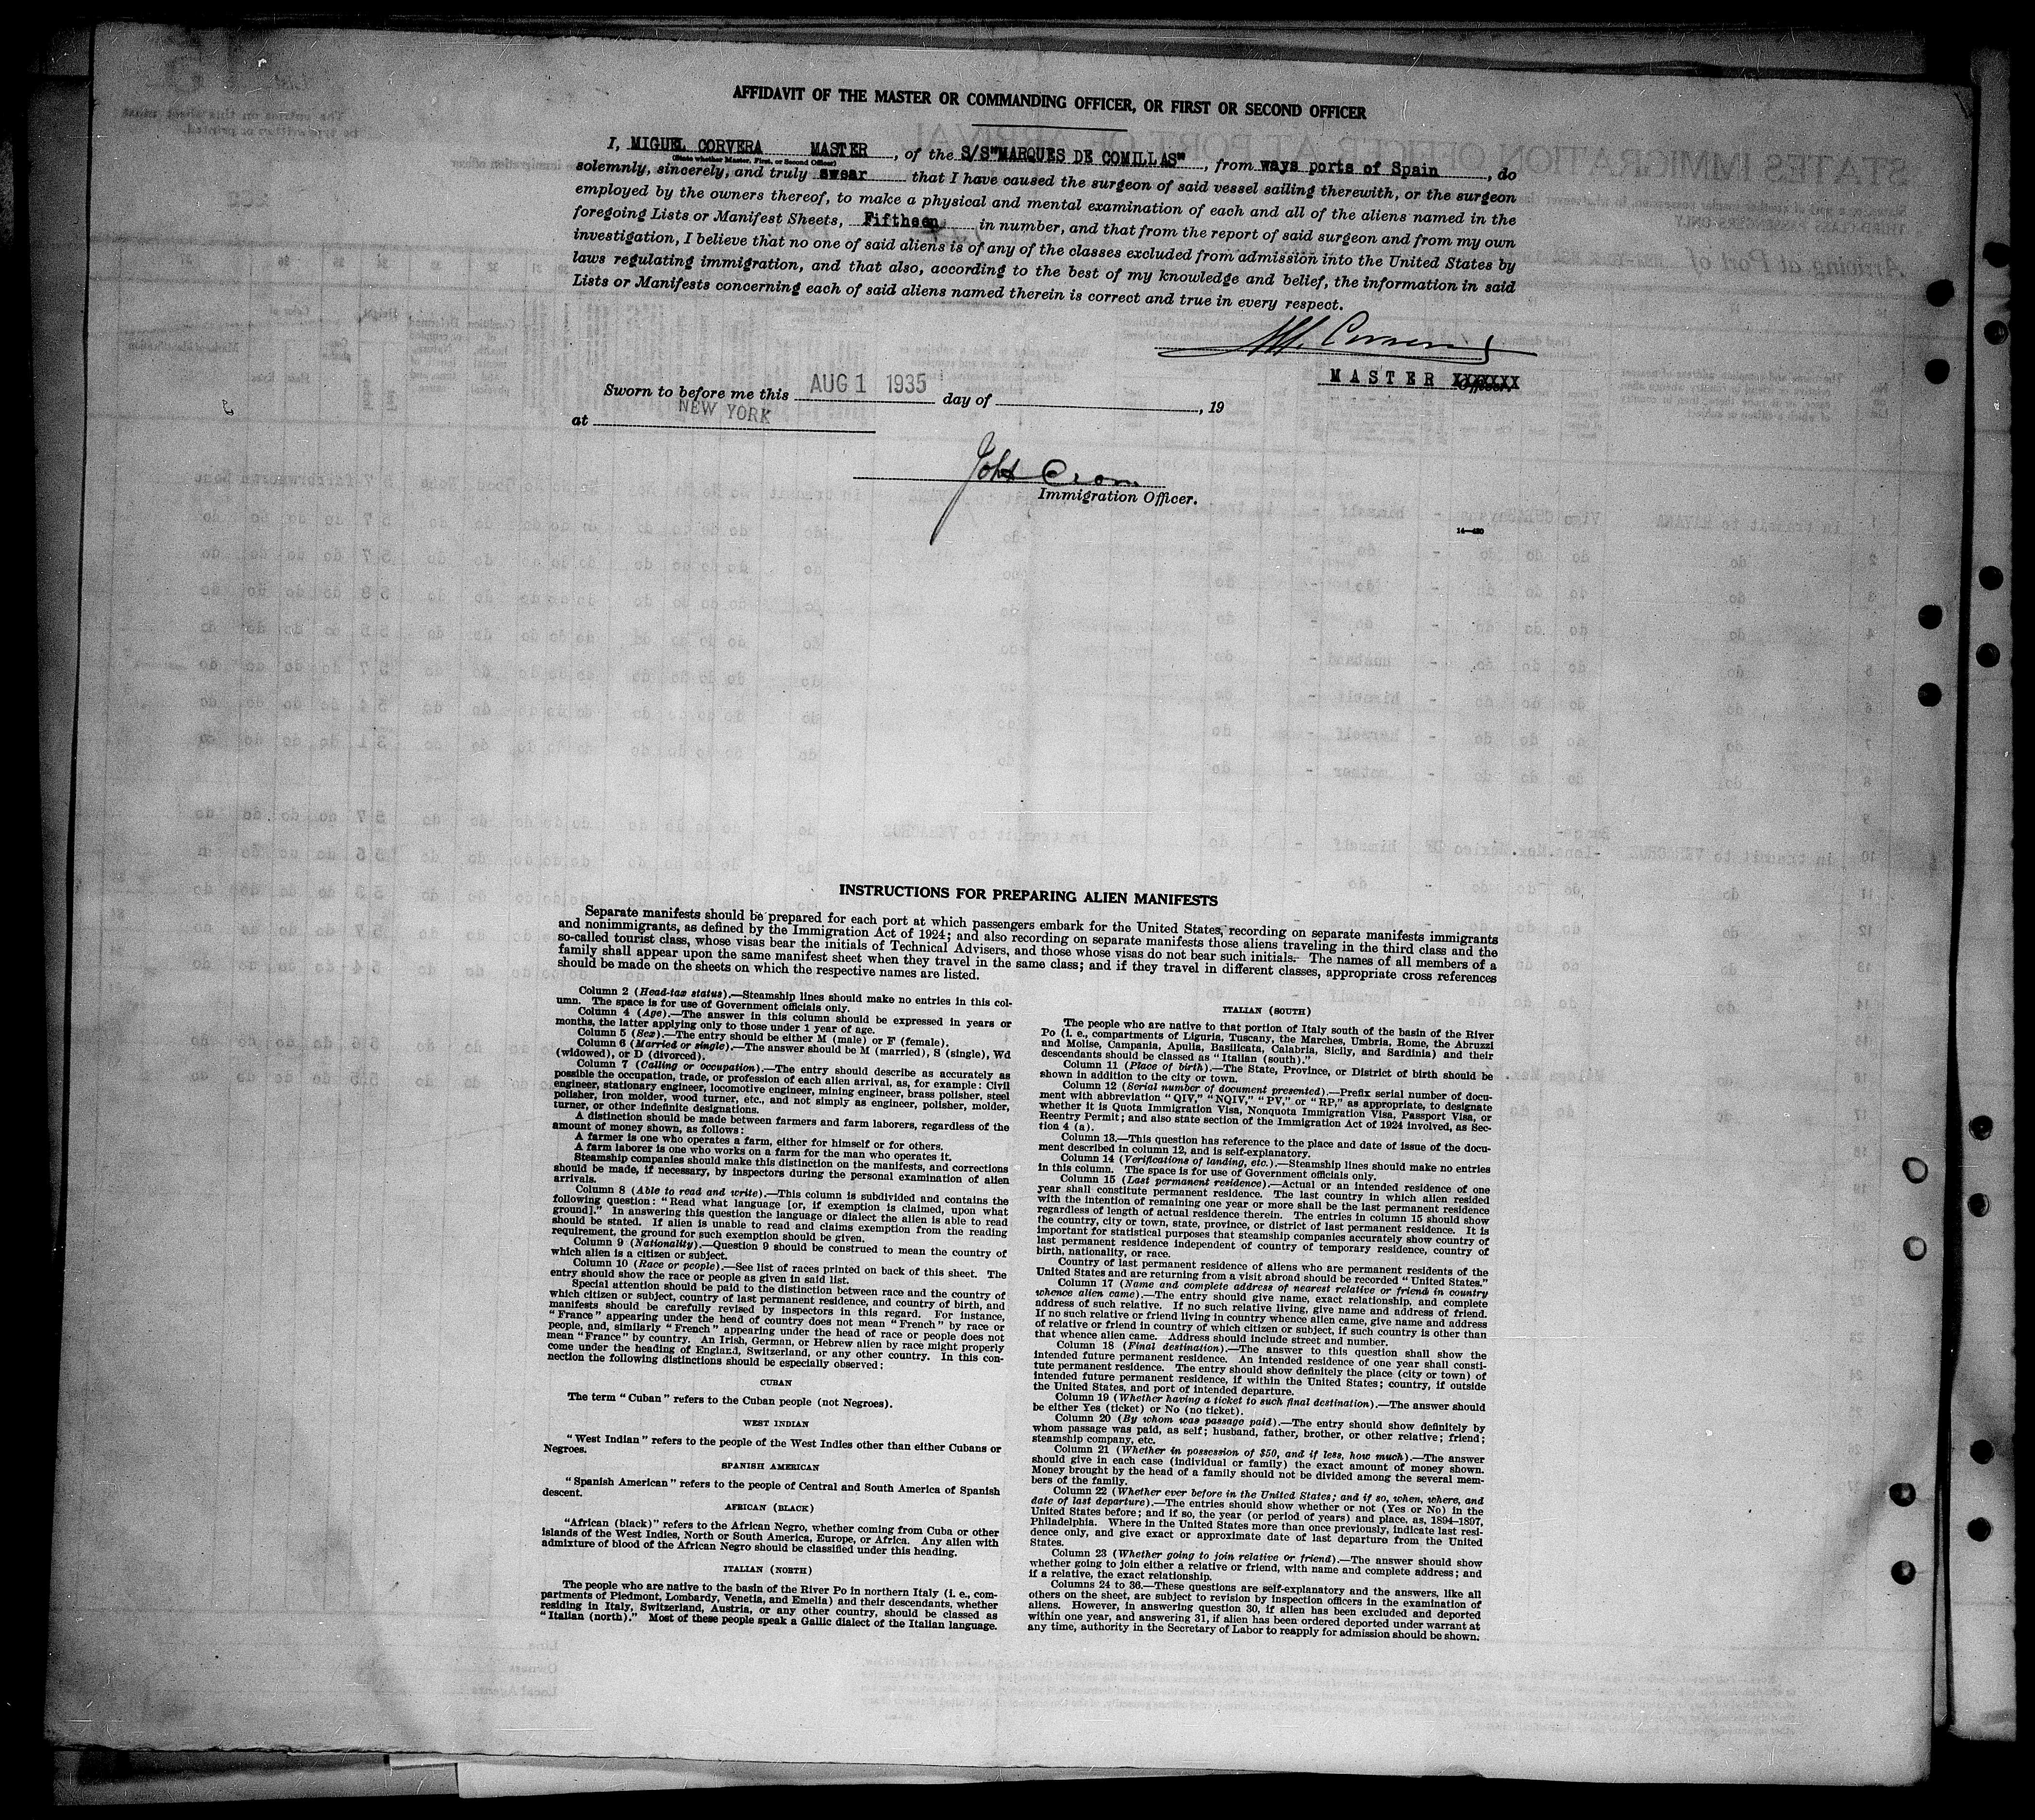 AFFIDAVIT OF THE MASTER OR COMMANDING OFFICER, OR FIRST OR SECOND OFFICER
I, MIGUEL CORVERA MASTER, of the S/S"MARQUES DE COMILLAS", from ways ports of Spain, do
(State whether Master, First, or Second Officer)
solemnly, sincerely, and truly swear that I have caused the surgeon of said vessel sailing therewith, or the surgeon
employed by the owners thereof, to make a physical and mental examination of each and all of the aliens named in the
foregoing Lists or Manifest Sheets, Fiftheen in number, and that from the report of said surgeon and from my own
investigation, I believe that no one of said aliens is of any of the classes excluded from admission into the United States by
laws regulating immigration, and that also, according to the best of my knowledge and belief, the information in said
Lists or Manifests concerning each of said aliens named therein is correct and true in every respect.
MASTER XXXXXXX
Officer.
Sworn to before me this AUG 1 1935 day of , 19
at NEW YORK
Immigration Officer.
14—420
INSTRUCTIONS FOR PREPARING ALIEN MANIFESTS
Separate manifests should be prepared for each port at which passengers embark for the United States, recording on separate manifests immigrants
and nonimmigrants, as defined by the Immigration Act of 1924; and also recording on separate manifests those aliens traveling in the third class and the
so-called tourist class, whose visas bear the initials of Technical Advisers, and those whose visas do not bear such initials. The names of all members of a
family shall appear upon the same manifest sheet when they travel in the same class; and if they travel in different classes, appropriate cross references
should be made on the sheets on which the respective names are listed.
Column 2 (Head-tax status).—Steamship lines should make no entries in this col-
umn. The space is for use of Government officials only.
Column 4 (Age).—The answer in this column should be expressed in years or
months, the latter applying only to those under 1 year of age.
Column 5 (Sex).—The entry should be either M (male) or F (female).
Column 6 (Married or single).—The answer should be M (married), S (single), Wd
(widowed), or D (divorced).
Column 7 (Calling or occupation).—The entry should describe as accurately as
possible the occupation, trade, or profession of each alien arrival, as, for example: Civil
engineer, stationary engineer, locomotive engineer, mining engineer, brass polisher, steel
polisher, iron molder, wood turner, etc., and not simply as engineer, polisher, molder,
turner, or other indefinite designations.
A distinction should be made between farmers and farm laborers, regardless of the
amount of money shown, as follows:
A farmer is one who operates a farm, either for himself or for others.
A farm laborer is one who works on a farm for the man who operates it.
Steamship companies should make this distinction on the manifests, and corrections
should be made, if necessary, by inspectors during the personal examination of alien
arrivals.
Column 8 (Able to read and write).—This column is subdivided and contains the
following question: "Read what language [or, if exemption is claimed, upon what
ground]." In answering this question the language or dialect the alien is able to read
should be stated. If alien is unable to read and claims exemption from the reading
requirement, the ground for such exemption should be given.
Column 9 (Nationality).—Question 9 should be construed to mean the country of
which alien is a citizen or subject.
Column 10 (Race or people).—See list of races printed on back of this sheet. The
entry should show the race or people as given in said list.
Special attention should be paid to the distinction between race and the country of
which citizen or subject, country of last permanent residence, and country of birth, and
manifests should be carefully revised by inspectors in this regard. For instance,
"France" appearing under the head of country does not mean "French" by race or
people, and, similarly "French" appearing under the head of race or people does not
mean "France" by country. An Irish, German, or Hebrew alien by race might properly
come under the heading of England, Switzerland, or any other country. In this con-
nection the following distinctions should be especially observed:
CUBAN
The term "Cuban" refers to the Cuban people (not Negroes).
WEST INDIAN
"West Indian" refers to the people of the West Indies other than either Cubans or
Negroes.
SPANISH AMERICAN
"Spanish American" refers to the people of Central and South America of Spanish
descent.
AFRICAN (BLACK)
"African (black)" refers to the African Negro, whether coming from Cuba or other
islands of the West Indies, North or South America, Europe, or Africa. Any alien with
admixture of blood of the African Negro should be classified under this heading.
ITALIAN (NORTH)
The people who are native to the basin of the River Po in northern Italy (i. e., com-
partments of Piedmont, Lombardy, Venetia, and Emelia) and their descendants, whether
residing in Italy, Switzerland, Austria, or any other country, should be classed as
"Italian (north)." Most of these people speak a Gallic dialect of the Italian language.
ITALIAN (SOUTH)
The people who are native to that portion of Italy south of the basin of the River
Po (i. e., compartments of Liguria, Tuscany, the Marches, Umbria, Rome, the Abruzzi
and Molise, Campania, Apulia, Basilicata, Calabria, Sicily, and Sardinia) and their
descendants should be classed as "Italian (south)."
Column 11 (Place of birth).—The State, Province, or District of birth should be
shown in addition to the city or town.
Column 12 (Serial number of document presented).—Prefix serial number of docu-
ment with abbreviation "QIV," "NQIV," "PV," or "RP," as appropriate, to designate
whether it is Quota Immigration Visa, Nonquota Immigration Visa, Passport Visa, or
Reentry Permit; and also state section of the Immigration Act of 1924 involved, as Sec-
tion 4 (a).
Column 13.—This question has reference to the place and date of issue of the docu-
ment described in column 12, and is self-explanatory.
Column 14 (Verifications of landing, etc.).—Steamship lines should make no entries
in this column. The space is for use of Government officials only.
Column 15 (Last permanent residence).—Actual or an intended residence of one
year shall constitute permanent residence. The last country in which alien resided
with the intention of remaining one year or more shall be the last permanent residence
regardless of length of actual residence therein. The entries in column 15 should show
the country, city or town, state, province, or district of last permanent residence. It is
important for statistical purposes that steamship companies accurately show country of
last permanent residence independent of country of temporary residence, country of
birth, nationality, or race.
Country of last permanent residence of aliens who are permanent residents of the
United States and are returning from a visit abroad should be recorded "United States."
Column 17 (Name and complete address of nearest relative or friend in country
whence alien came).—The entry should give name, exact relationship, and complete
address of such relative. If no such relative living, give name and address of friend.
If no such relative or friend living in country whence alien came, give name and address
of relative or friend in country of which citizen or subject, if such country is other than
that whence alien came. Address should include street and number.
Column 18 (Final destination).—The answer to this question shall show the
intended future permanent residence. An intended residence of one year shall consti-
tute permanent residence. The entry should show definitely the place (city or town) of
intended future permanent residence, if within the United States; country, if outside
the United States, and port of intended departure.
Column 19 (Whether having a ticket to such final destination).—The answer should
be either Yes (ticket) or No (no ticket).
Column 20 (By whom was passage paid).—The entry should show definitely by
whom passage was paid, as self; husband, father, brother, or other relative; friend;
steamship company, etc.
Column 21 (Whether in possession of $50, and if less, how much).—The answer
should give in each case (individual or family) the exact amount of money shown.
Money brought by the head of a family should not be divided among the several mem-
bers of the family.
Column 22 (Whether ever before in the United States; and if so, when, where, and
date of last departure).—The entries should show whether or not (Yes or No) in the
United States before; and if so, the year (or period of years) and place, as, 1894–1897,
Philadelphia. Where in the United States more than once previously, indicate last resi-
dence only, and give exact or approximate date of last departure from the United
States.
Column 23 (Whether going to join relative or friend).—The answer should show
whether going to join either a relative or friend, with name and complete address; and
if a relative, the exact relationship.
Columns 24 to 36.—These questions are self-explanatory and the answers, like all
others on the sheet, are subject to revision by inspection officers in the examination of
aliens. However, in answering question 30, if alien has been excluded and deported
within one year, and answering 31, if alien has been ordered deported under warrant at
any time, authority in the Secretary of Labor to reapply for admission should be shown.